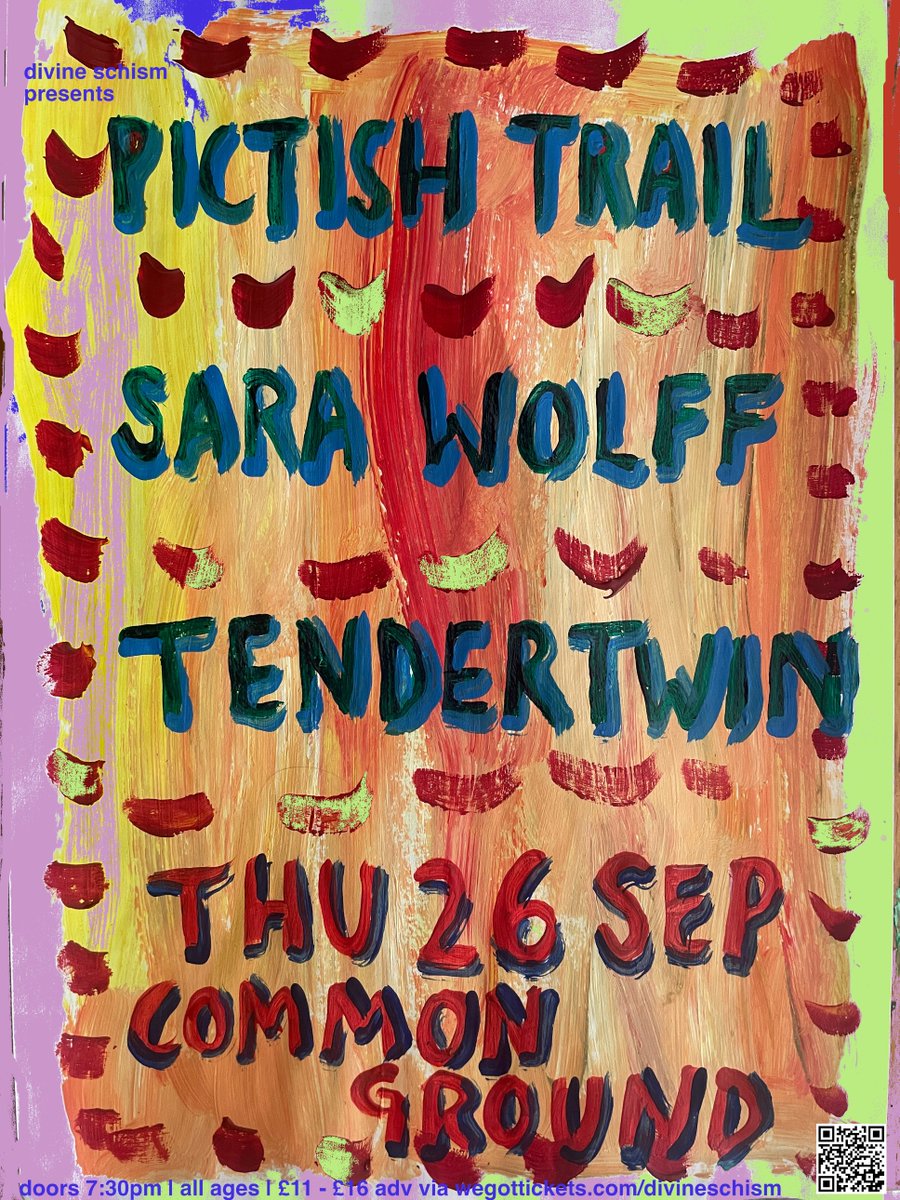 divine schism
presents
PICTISH TRAIL
SARA WOLFF
TENDERTWIN
THU 26 SEP
COMMON
GROUND
doors 7:30pm I all ages I £11 - £16 adv via wegottickets.com/divineschism